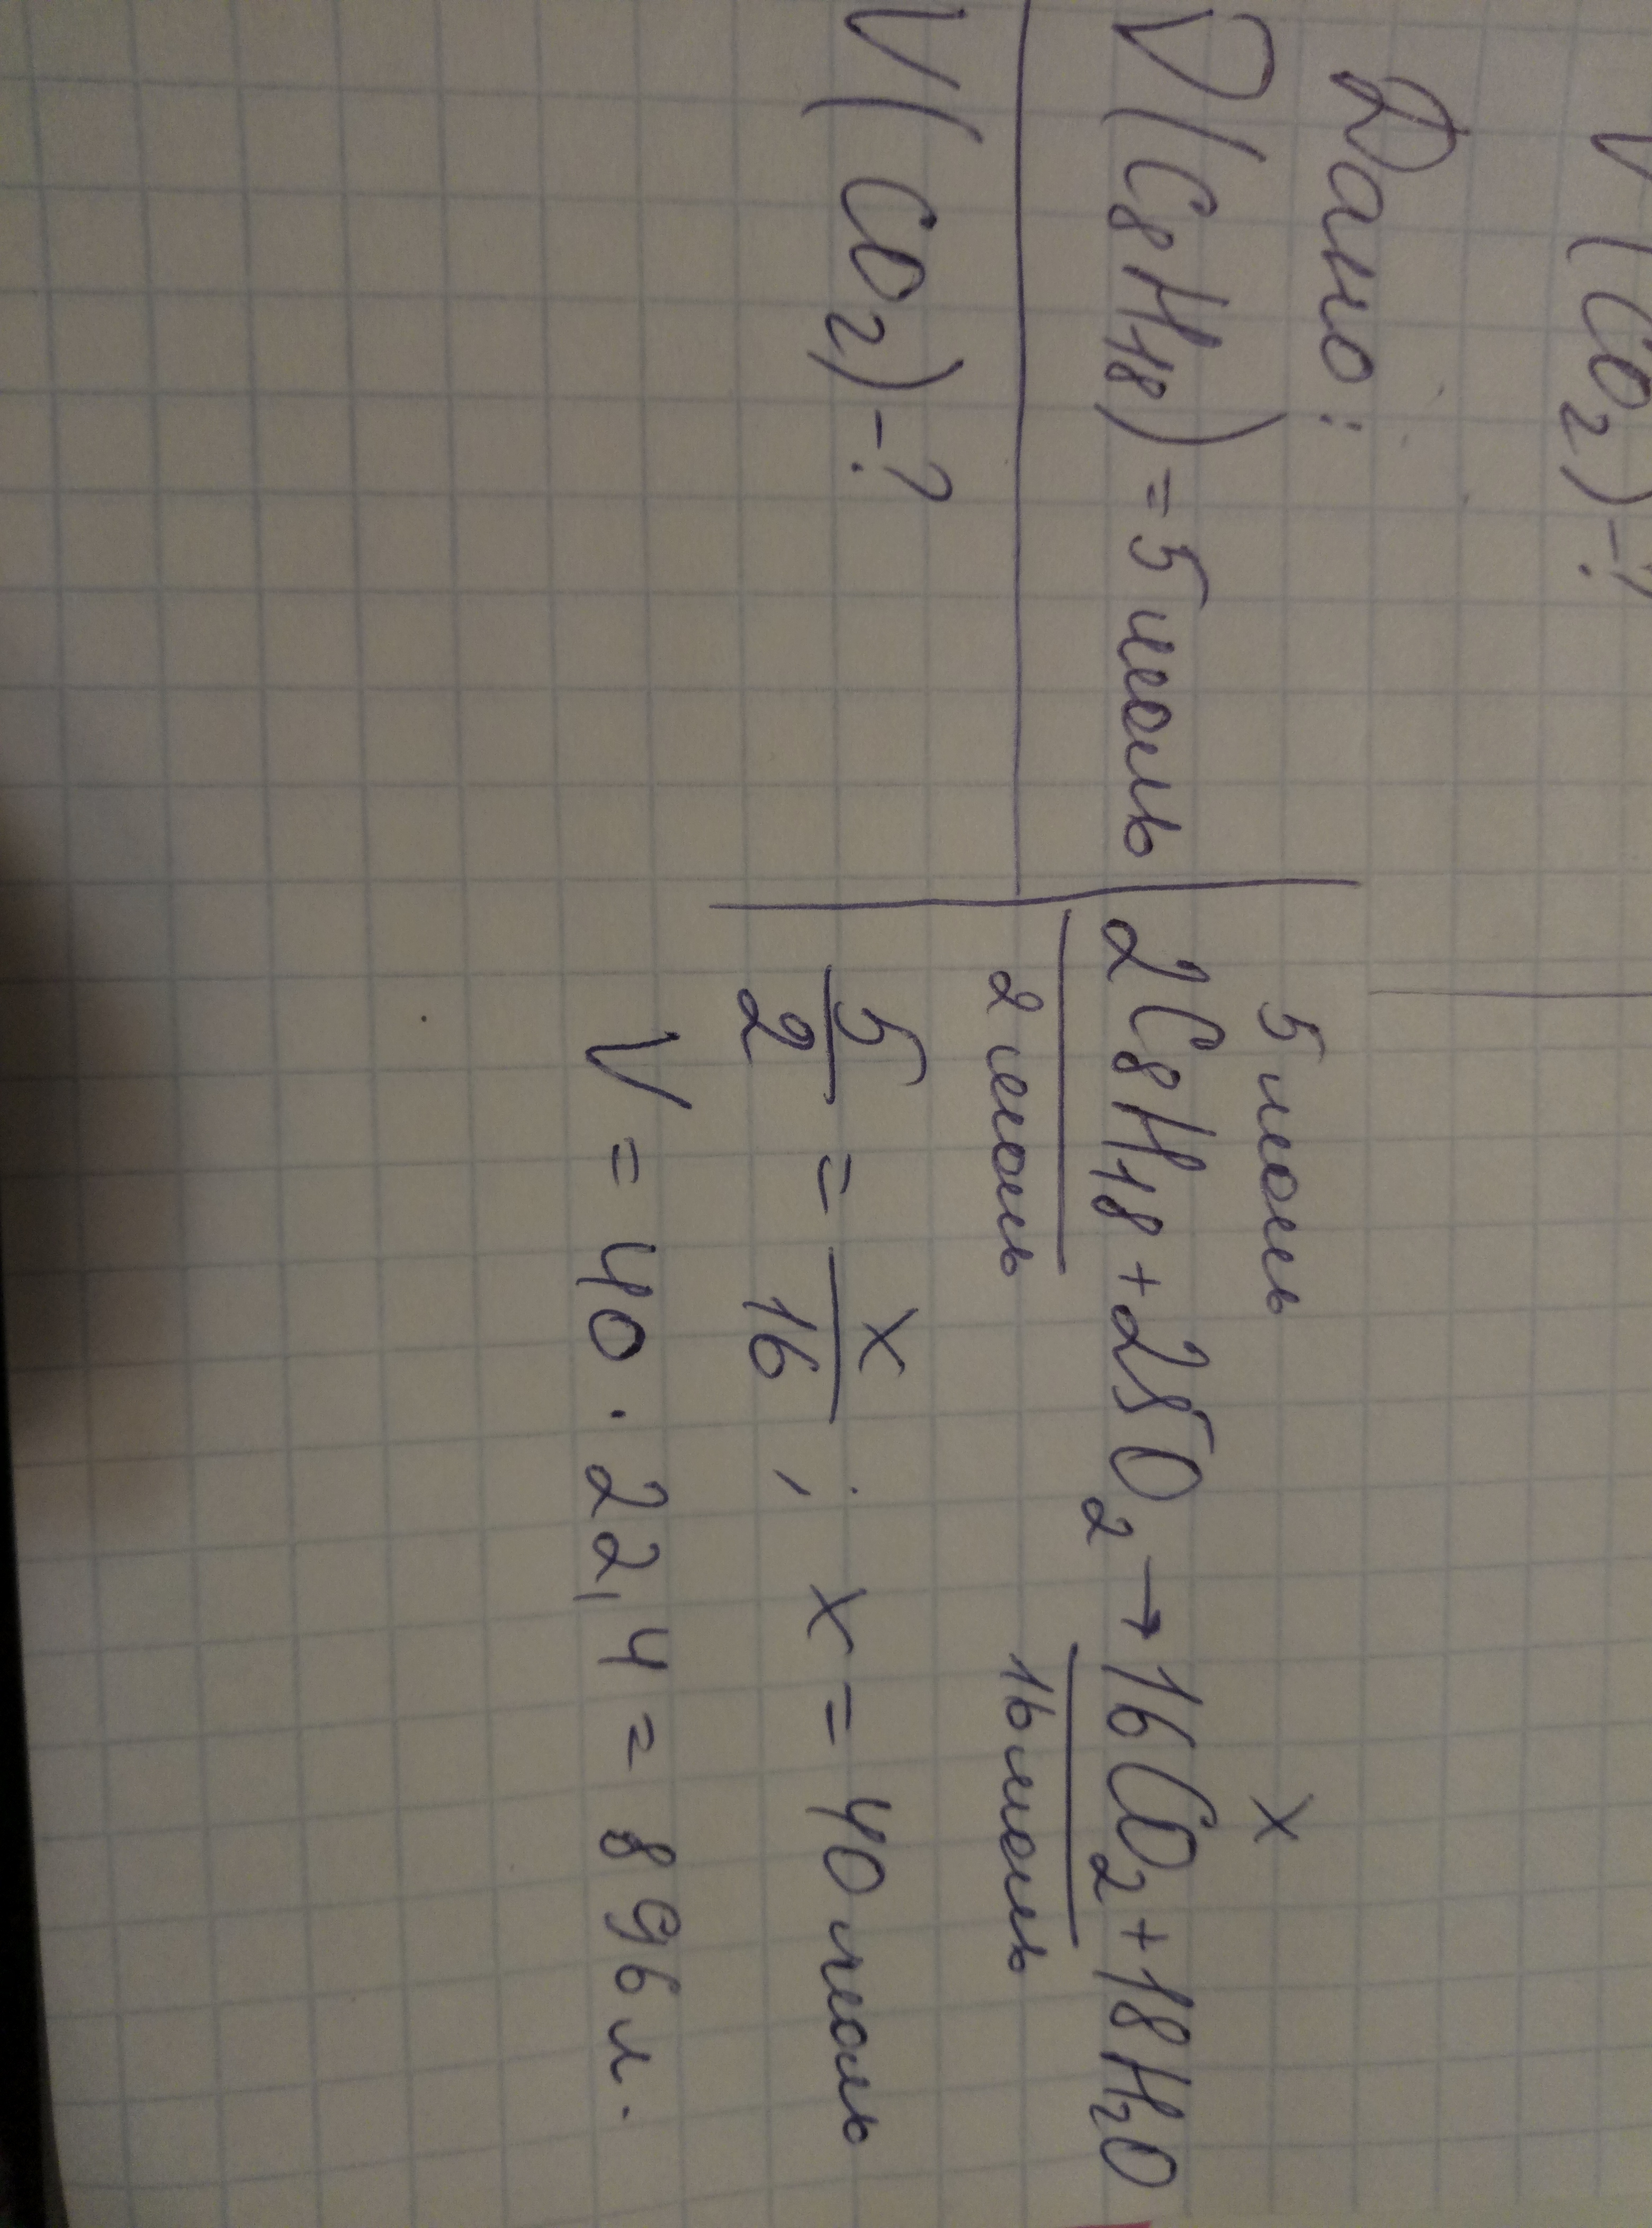 V(CO2)-?
Дано:
V(C8H18)=5 моль
V(CO2)-?
5 моль x
2C8H18+25O2→16CO2+18H2O
2 моль 16 моль
5/2 = x/16 ; x=40 моль
V=40·22,4=896 л.